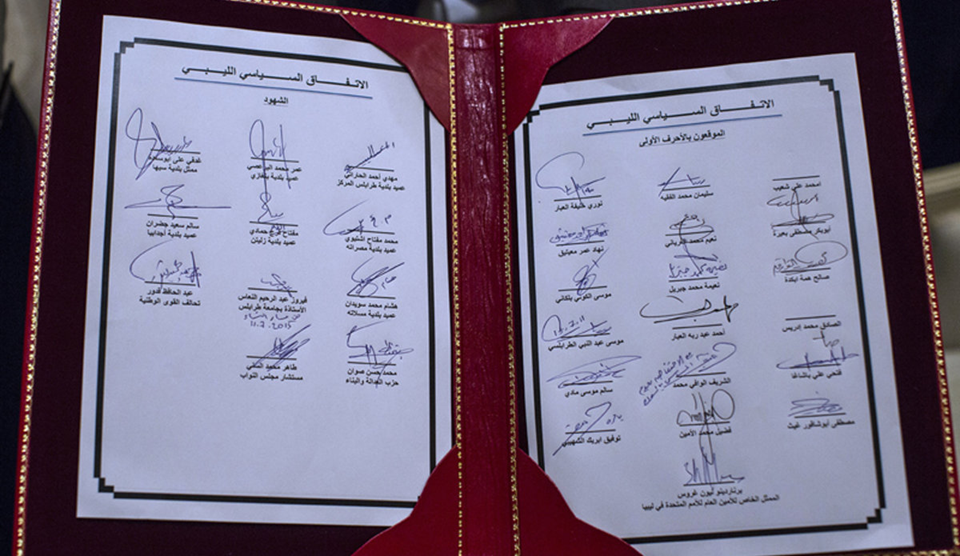 الاتفاق السياسي الليبي
الموقعون بالأحرف الأولى
امحمد علي شعيب
سليمان محمد الفقيه
نوري خليفة العبار
أبوبكر مصطفى بعيرة
نهاد عمر معيتيق
صالح همة ابكدة
نعيمة محمد جبريل
موسى الكوني بلكاني
الصادق محمد إدريس
أحمد عبد ربه العبار
موسى عبد النبي الطرابلسي
فتحي علي باشاغا
الشريف الوافي محمد
سالم موسى مادي
مصطفى أبوشاقور غيث
فضيل محمد الأمين
توفيق ابريك الشهيبي
برنارديـنو ليون غروس
الممثل الخاص للأمين العام للأمم المتحدة في ليبيا
الاتفاق السياسي الليبي
الشهود
مهدي أحمد الحاراتي
عميد بلدية طرابلس المركز
عمر محمد البرعصي
عميد بلدية بنغازي
ممثل بلدية سبها
محمد مفتاح اشتيوي
عميد بلدية مصراته
مفتاح فرج حمادي
عميد بلدية زليتن
سالم سعيد جضران
عميد بلدية أجدابيا
هشام محمد سويدان
عميد بلدية مسلاته
فيروز عبد الرحيم النعاس
الأستاذة بجامعة طرابلس
11.7.2015
عبد الحافظ قدور
تحالف القوى الوطنية
محمد حسن صوان
حزب العدالة والبناء
طاهر محمد المكني
مستشار مجلس النواب